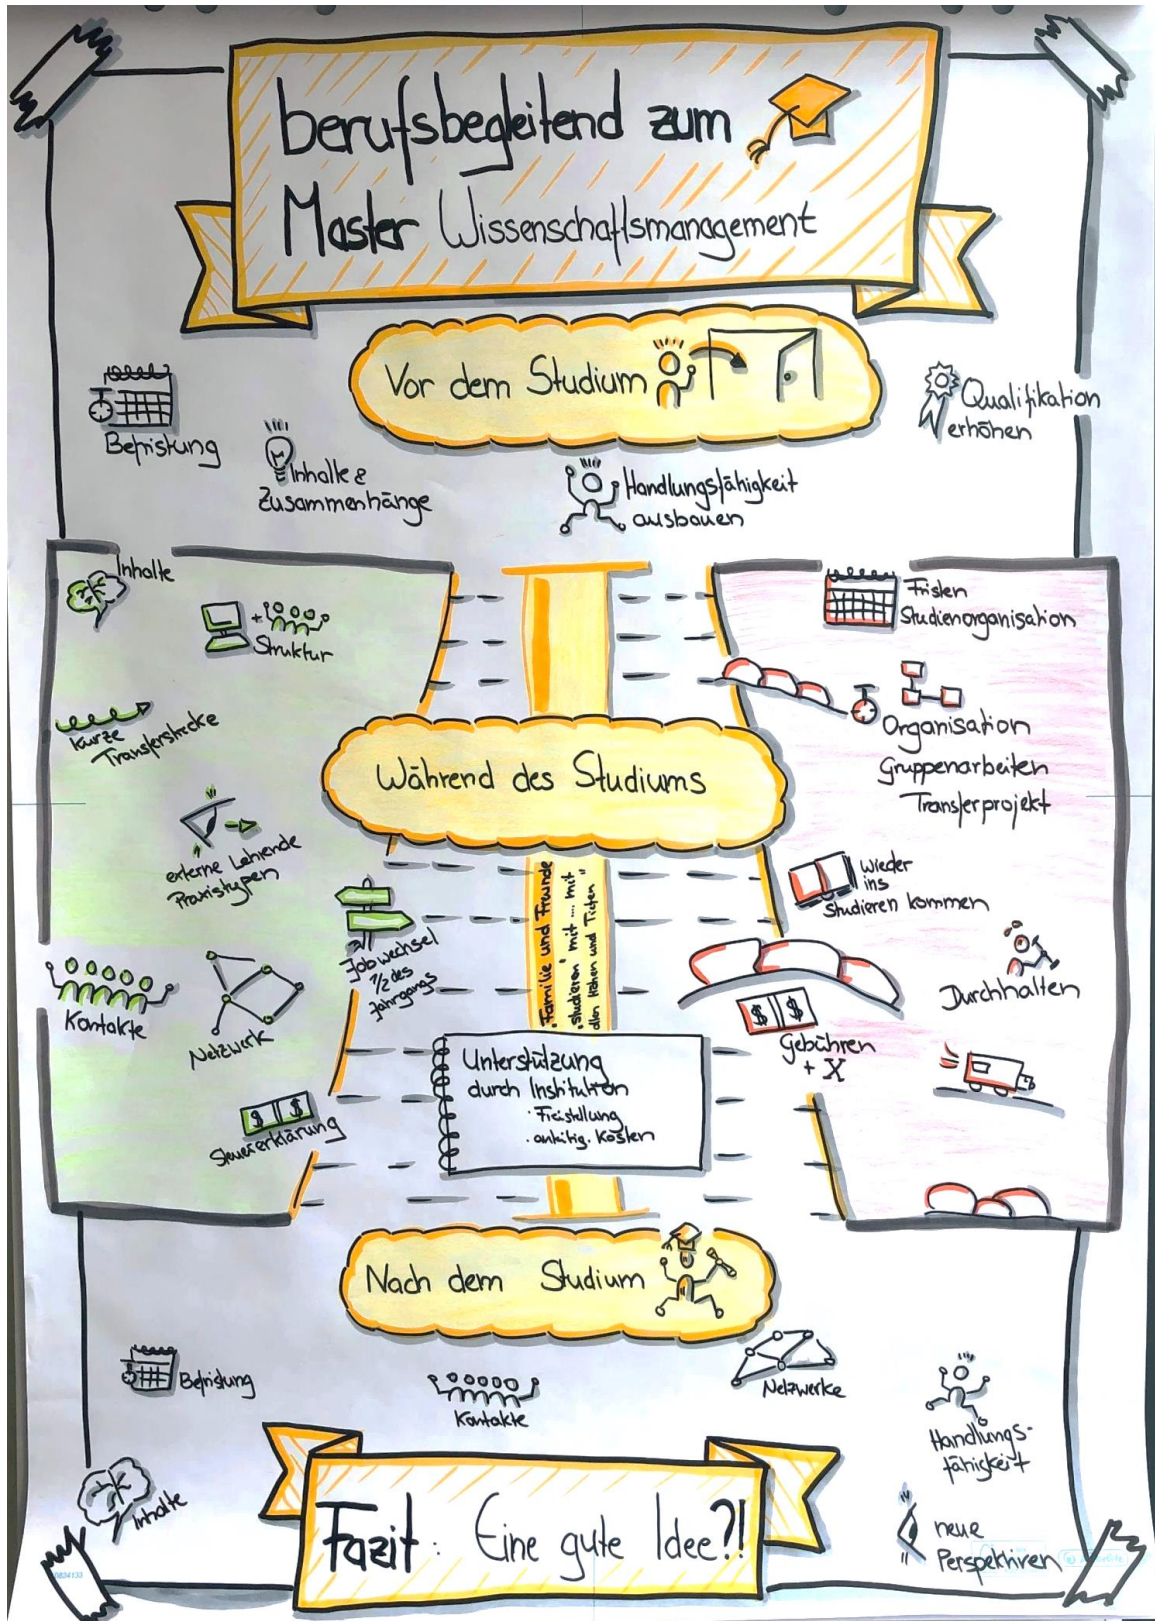 berufsbegleitend zum
Master Wissenschaftsmanagement
Vor dem Studium
Befristung
Inhalte &
Zusammenhänge
Handlungsfähigkeit
ausbauen
Qualifikation
erhöhen
Inhalte
+
Struktur
kurze
Transferstrecke
externe Lehrende
Praxistypen
Jobwechsel
1/2 des
Jahrgangs
Kontakte
Netzwerk
$ $
Steuererklärung
Während des Studiums
"Familie und Freunde
"studieren" mit .... mit
allen Höhen und Tiefen"
Unterstützung
durch Institution
· Freistellung
· anteilig. Kosten
Fristen
Studienorganisation
Organisation
Gruppenarbeiten
Transferprojekt
Wieder
ins
Studieren kommen
Durchhalten
$ $
Gebühren
+ X
Nach dem Studium
Befristung
Kontakte
Netzwerke
Handlungs-
fähigkeit
Inhalte
neue
Perspektiven
Fazit: Eine gute Idee?!